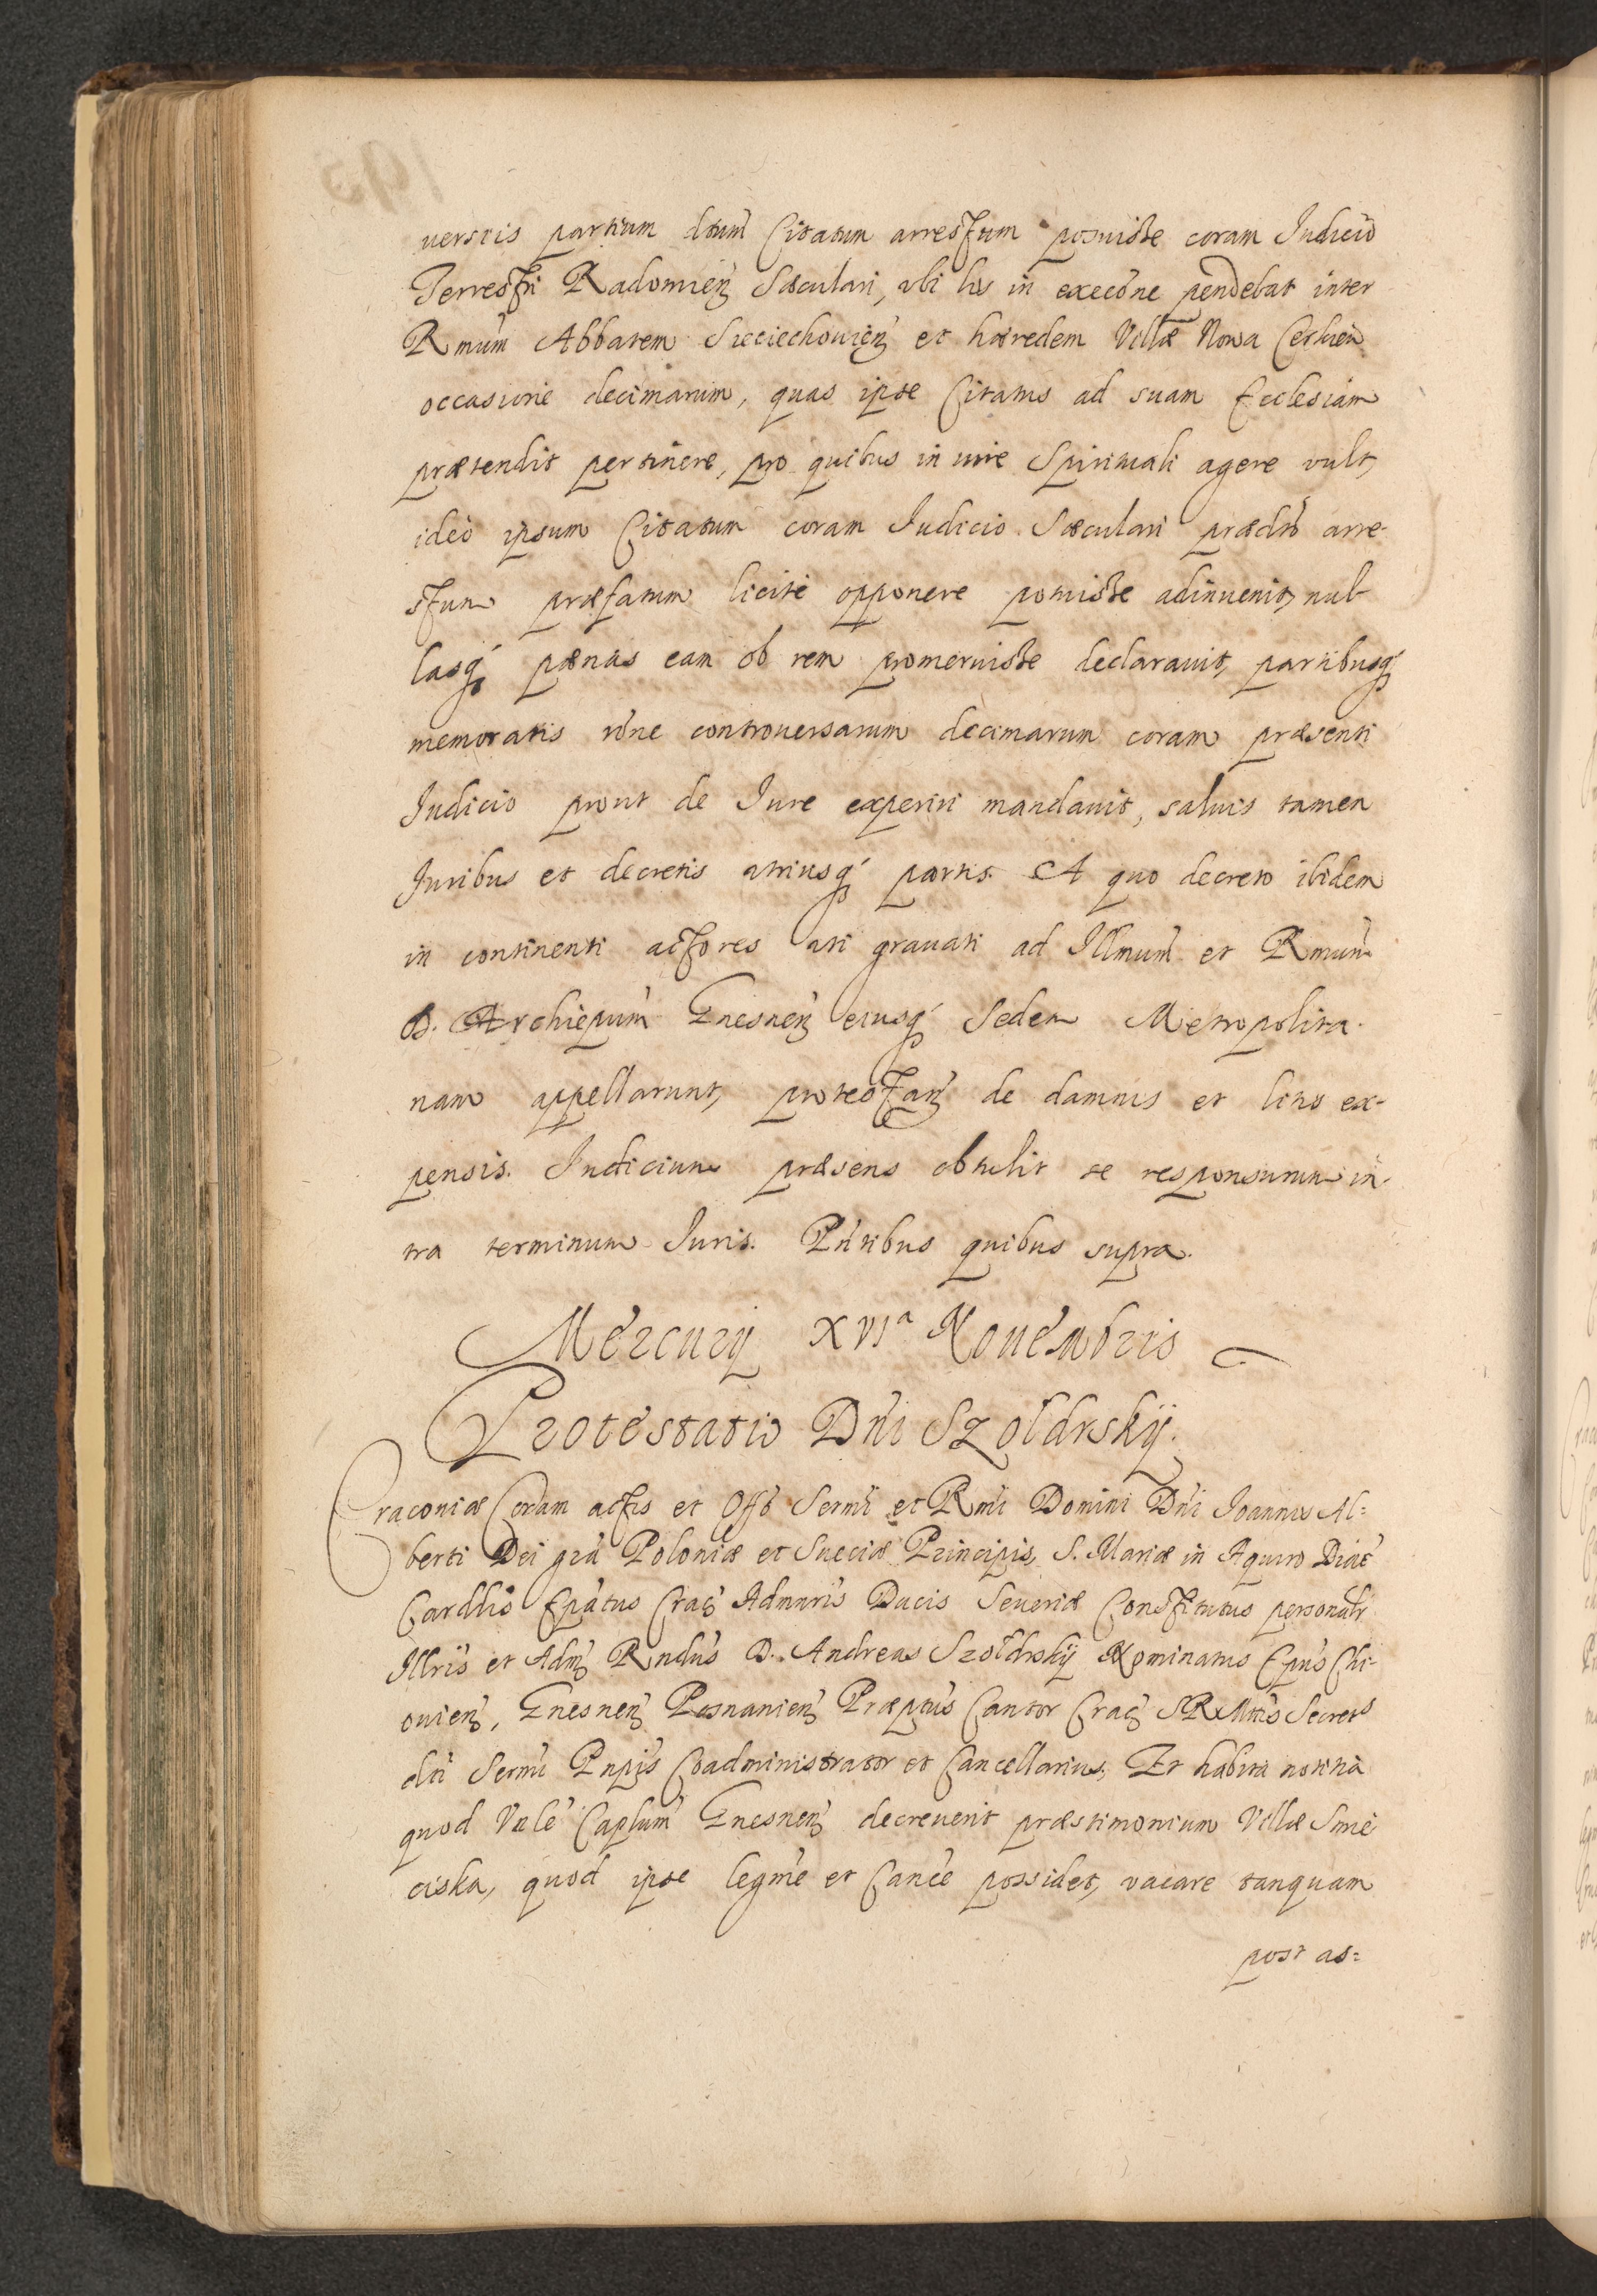 uersiis partium dtum Citatum arrestum posuisse coram Iudicio
Terrestri Radomien̄ Sæculari, vbi lis in execōne pendebat inter
Rmum Abbatem Sieciechouien̄ et hæredem Villæ Nowa
occasione decimarum, quas ipse Citatus ad suam Ecclesiam
prætendit pertinere, pro quibus in iure Spirituali agere vult,
ideo ipsum Citatum coram Iudicio Sæculari prædto arre-
stum præfatum licitè opponere potuisse adinuenit, nul-
lasq́ pænas eam ob rem promeruisse declarauit, partibusq́
memoratis rōne controuersarum decimarum coram præsenti
Iudicio prout de Iure experiri mandauit, saluis tamen
Iuribus et decretis vtriusq́ partis. A quo decreto ibidem
in continenti actores vti grauati ad Illmum et Rmum
D. Archiepum Gnesnen̄ eiusq́ Sedem Metropolita-
nam appellarunt, protestan̄ de damnis et litis ex-
pensis. Iudicium præsens obtulit se responsurum in-
tra terminum Iuris. Pn̄tibus quibus supra.
Mercurij XVIa Nouembris
Protestatio Dn̄i Szołdrskij.
Craconiæ Coram actis et Offō Sermi et Rmi Domini Dn̄i Ioannis Al=
berti Dei grā Poloniæ et Sueciæ Principis, S. Mariæ in Aquiro Diac̄
Cardlis Epātus Crac̄ Admnris Ducis Seueriæ Constitutus personalr
Illris et Adm̄ Rndus D. Andreas Szołdrskij Nominatus Epus Chi-
ouien̄, Gnesnen̄ Posnanien̄ Præptus Cantor Crac̄ SRMttis Secrets
dti Sermi Pnpis Coadministrator et Cancellarius, Et habita notitia
quod Vnle Caplum Gnesnen̄ decreuerit præstimonium Villæ Smie
ciska, quod ipse legme et Cance possidet, vacare tanquam
post as=